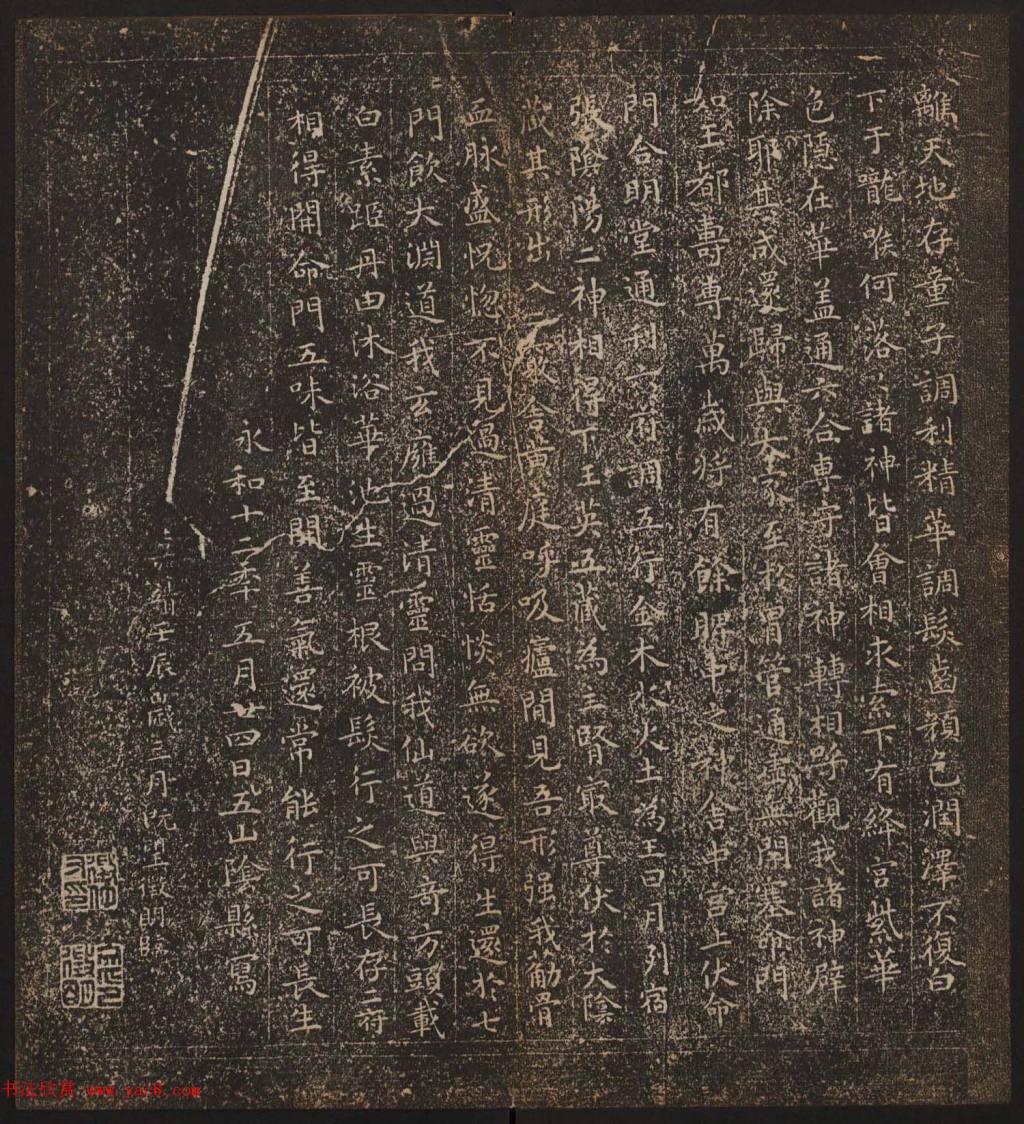 離天地存童子調利精華調髮齒顏色潤澤不復白
下于嚨喉何落諸神皆會相求索下有絳宮紫華
色隱在華盖通六合專守諸神轉相呼觀我諸神辟
除耶其成還歸與大家至於胃管通虛無閉塞命門
如王都壽專萬歲將有餘脾中之神舍中宮上伏命
門合明堂通利六府調五行金木水火土為王日月列宿
張陰陽二神相得下王英五藏為主腎最尊伏於大陰
藏其形出入二竅舍黃庭呼吸廬間見吾形强我筋骨
血脉盛怳惚不見過清靈恬惔無欲遂得生還於七
門飲大淵道我玄廱過清靈問我仙道與奇方頭載
白素距丹田沐浴華池生靈根被髮行之可長存二府
相得開命門五味皆至開善氣還常能行之可長生
永和十二年五月廿四日五山陰縣寫
壬辰歲三月既望徵明臨
書法欣賞 www.yac8.com